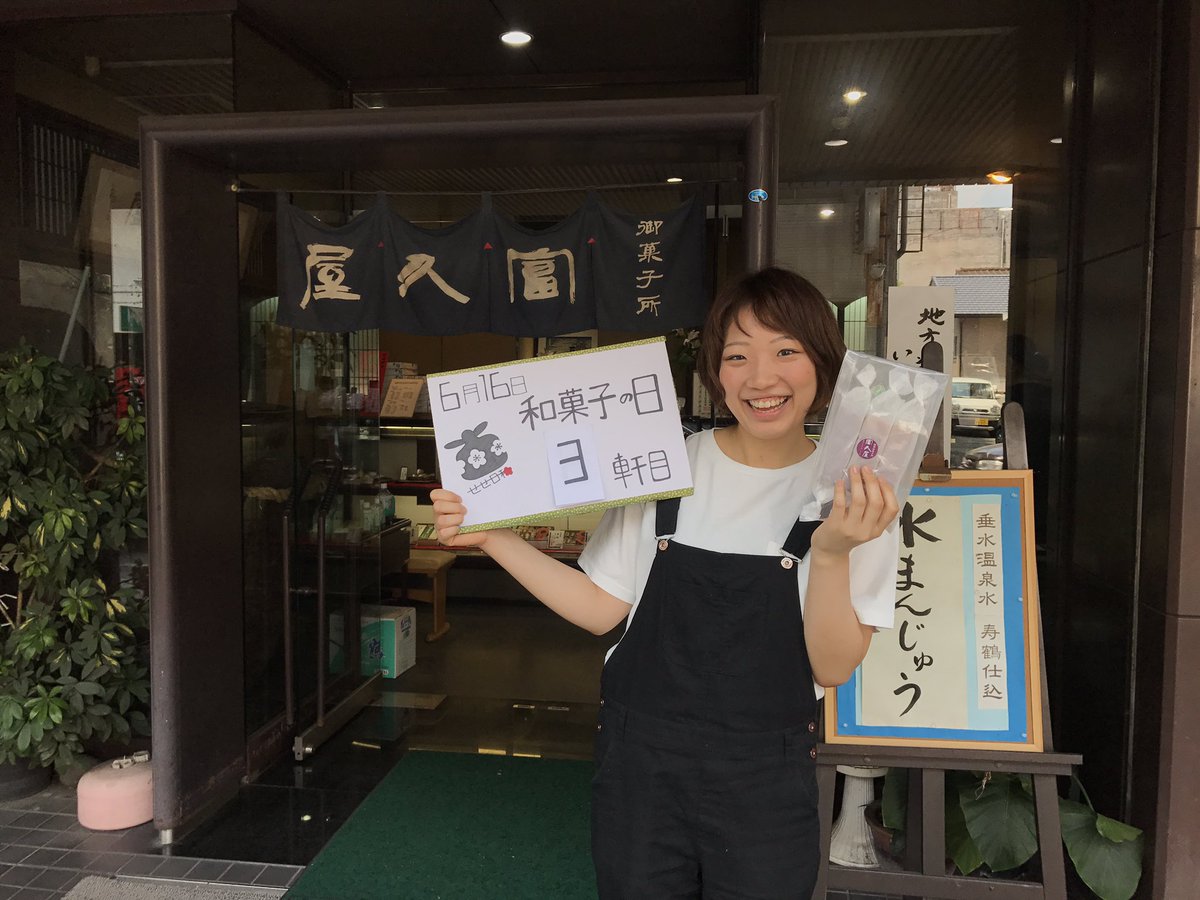 御菓子所
富久屋
6月16日
和菓子の日
3
軒目
せせ日和
地方
い
水まんじゅう
垂水温泉水 寿鶴仕込